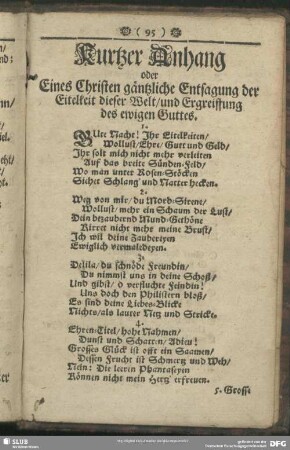 ( 95 )
Kurtzer Anhang
oder
Eines Christen gäntzliche Entsagung der
Eitelkeit dieser Welt/und Ergreiffung
des ewigen Guttes.
1.
GUte Nacht! Ihr Eitelkeiten/
Wollust/Ehre/Gutt und Geld/
Ihr solt mich nicht mehr verleiten
Auf das breite Sünden-Feld/
Wo man unter Rosen-Stöcken
Siehet Schlang' und Natter hecken.
2.
Weg von mir/du Mord-Sirene/
Wollust/mehr ein Schaum der Lust/
Dein bezaubernd Mund-Gethöne
Kirret nicht mehr meine Brust/
Ich wil deine Zaubereyen
Ewiglich vermaledeyen.
3.
Delila/du schnöde Freundin/
Du nimmst uns in deine Schoß/
Und gibst/o verfluchte Feindin!
Uns doch den Philistern bloß/
Es sind deine Liebes-Blicke
Nichts/als lauter Netz und Stricke.
4.
Ehren-Titel/hohe Nahmen/
Dunst und Schatten/Adieu!
Grosses Glück ist offt ein Saamen/
Dessen Frucht ist Schmertz und Weh/
Nein: Die leeren Phantaseyen
Können nicht mein Hertz erfreuen.
5. Grosse
SLUB
DFG